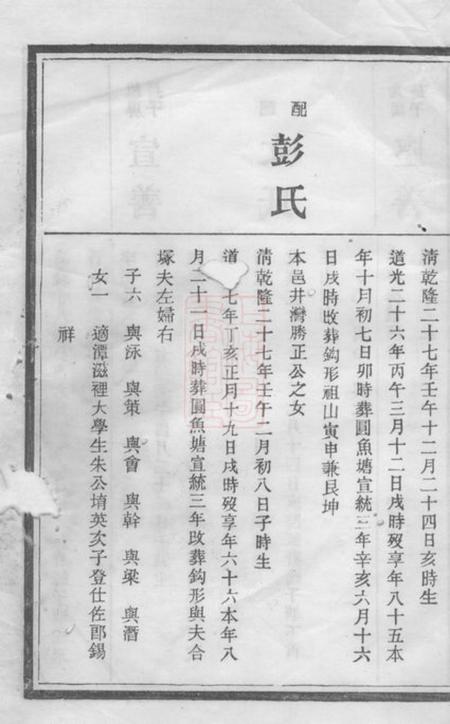 清乾隆二十七年壬午十二月二十四日亥時生
道光二十六年丙午三月十二日戌時歿享年八十五本
年十月初七日卯時葬圓魚塘宣統三年辛亥六月十六
日戌時改葬鈎形祖山寅申兼艮坤
配
彭氏
本邑井灣勝正公之女
清乾隆二十七年壬午二月初八日子時生
道 七年丁亥正月十九日戌時歿享年六十六本年八
月二十二日戌時葬圓魚塘宣統三年改葬鈎形與夫合
塚夫左婦右
子六 與泳 與策 與會 與幹 與梁 與潛
女一 適潭滋裡大學生朱公堉英次子登仕佐郎錫
祥